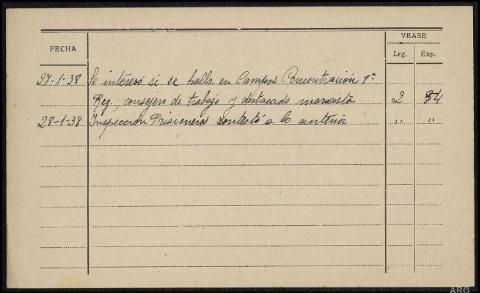 VEASE
FECHA
Leg. Exp.
27-1-38 Se interesó si se halla en Campos Concentración 8ª
Reg. consejero de trabajo y destacado marxista 2 84
28-1-38 Inspección Prisioneros contestó a lo anterior " "
ARG